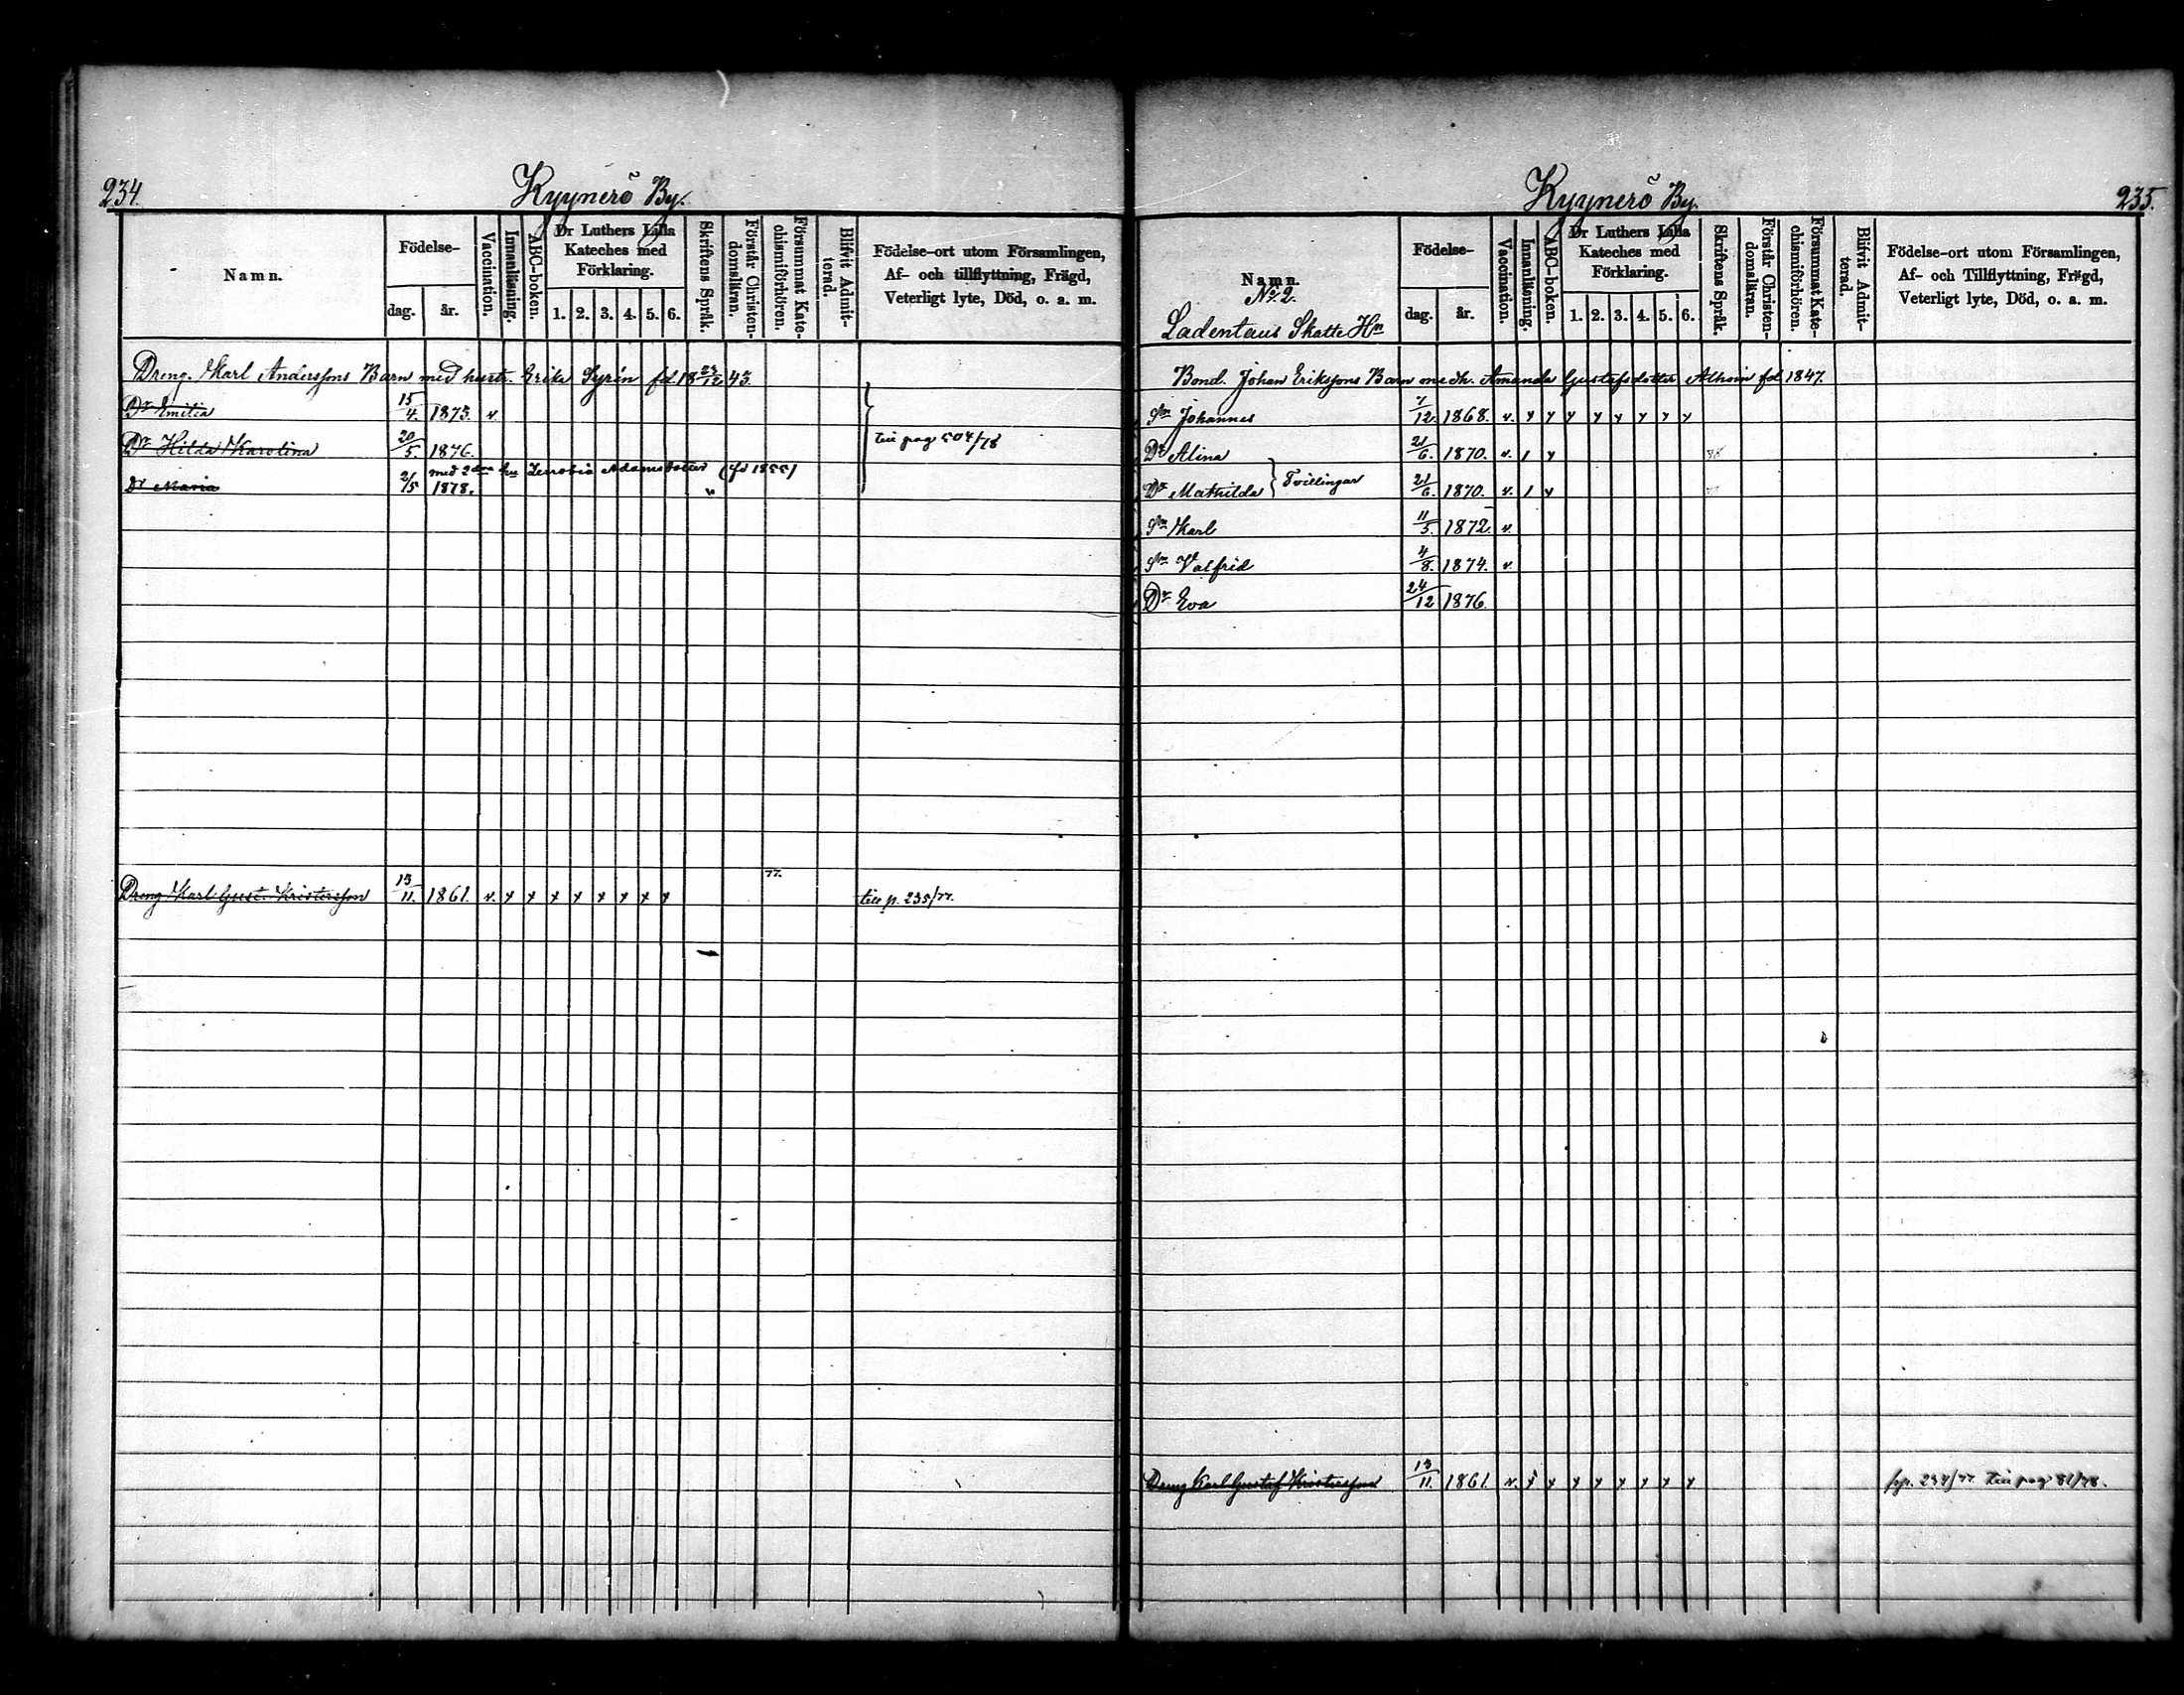 234.
Kyynerö By.
Namn.
Födelse-
dag.
år.
Vaccination.
Innanläsning.
ABC-boken.
Dr Luthers Lilla
Kateches med
Förklaring.
1. 2. 3. 4. 5. 6.
Skriftens Språk.
Förstår Christen-
domsläran.
Försummat Kate-
chismiförhören.
Blifvit Admit-
terad.
Födelse-ort utom Församlingen,
Af- och tillflyttning, Frägd,
Veterligt lyte, Död, o. a. m.
Dreng. Karl Anderssons Barn med hustr. Erika Syrén fd 18 23/12 43.
Dr Emilia 15/4. 1873. v.
Dr Hilda Karolina 20/5. 1876. till pag 504/78
med 2dra hu Zenobia Adamsdotter (fd 1855)
Dr Maria 2/5 1878. "
77.
Dreng Karl Gust. Kristersson 13/11. 1861. v. y y y y y y y y till p. 235/77.
Kyynerö By.
235.
Namn.
No. 2.
Ladentaus Skatte Hn
Födelse-
dag.
år.
Vaccination.
Innanläsning.
ABC-boken.
Dr Luthers Lilla
Kateches med
Förklaring.
1. 2. 3. 4. 5. 6.
Skriftens Språk.
Förstår Christen-
domsläran.
Försummat Kate-
chismiförhören.
Blifvit Admit-
terad.
Födelse-ort utom Församlingen,
Af- och Tillflyttning, Frägd,
Veterligt lyte, Död, o. a. m.
Bond. Johan Erikssons Barn med h. Amanda Gustafsdotter Alhoin fd 1847.
Sn Johannes 7/12. 1868. v. y y y y y y y y
Dr Alina 21/6. 1870. v. 1 y
Dr Mathilda } Tvillingar 21/6. 1870. v. 1 y
Sn Karl 11/5. 1872. v.
Sn Valfrid 4/8. 1874. v.
Dr Eva 24/12 1876.
Dreng Karl Gustaf Kristersson 13/11. 1861. v. y y y y y y y y frp. 234/77. till pag 81/78.